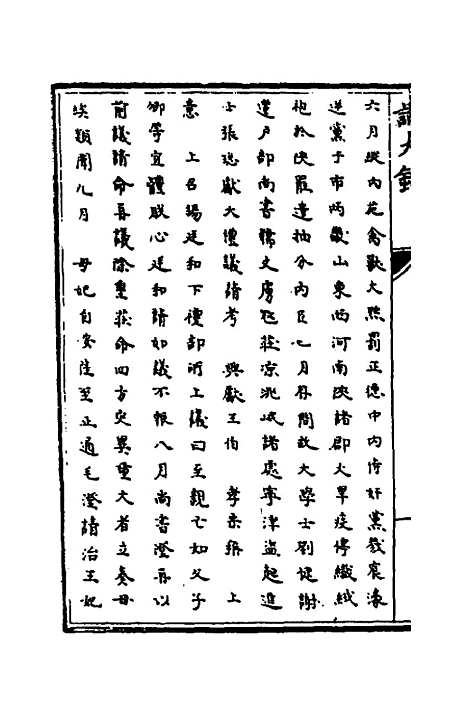 六月縱內苑禽獸大黜罰正德中內侍奸黨戮哀溱
逆黨于市兩畿山東西河南陝諸郡大旱疫停織絨
袍於陝罷遣抽分內臣七月存問故大學士劉健謝
遷戶部尚書韓文虜寇莊涼洮岷諸處寧津盜起進
士張璁獻大禮議請考 興獻王伯 孝宗稱 上
意 上召楊廷和下禮部所上議曰至親亡如父子
卿等宜體朕心廷和請如議不報八月尚書澄再以
前議請命再議除皇莊命四方災異重大者立奏毋
俟類聞九月 母妃自安陸至正通毛澄請治王妃